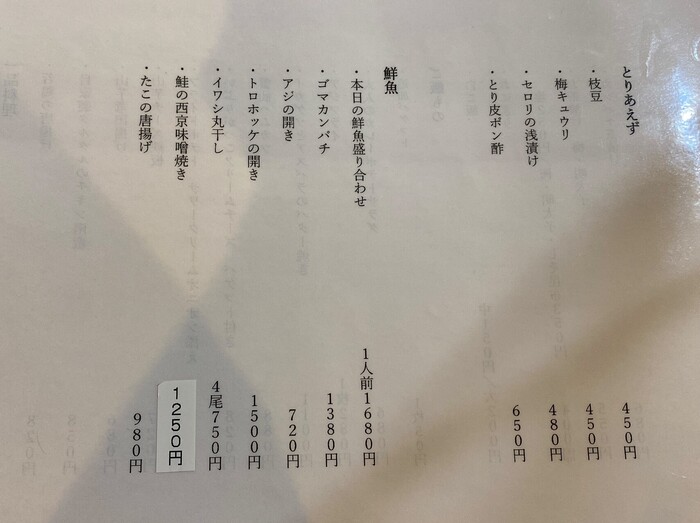 とりあえず
・枝豆 450円
・梅キュウリ 450円
・セロリの浅漬け 480円
・とり皮ポン酢 650円
鮮魚
・本日の鮮魚盛り合わせ 1人前1680円
・ゴマカンパチ 1380円
・アジの開き 720円
・トロホッケの開き 1500円
・イワシ丸干し 4尾750円
・鮭の西京味噌焼き 1250円
・たこの唐揚げ 980円